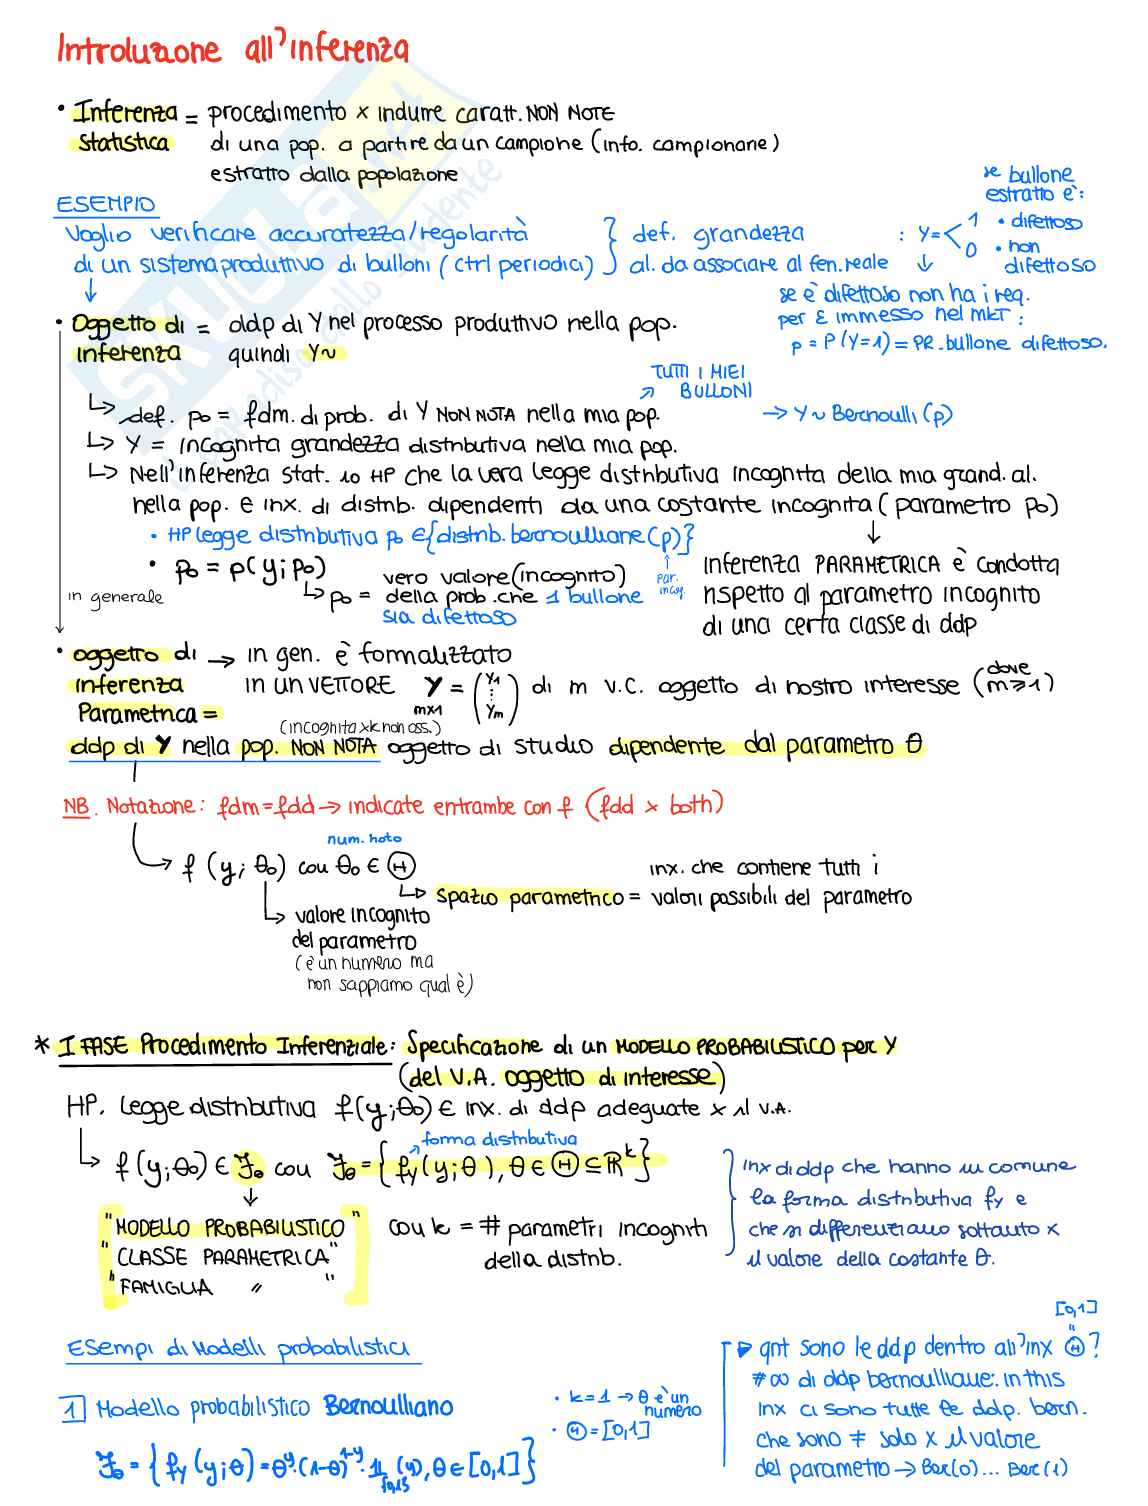 Introduzione all'inferenza
• Inferenza = procedimento x indurre caratt. NON NOTE
statistica di una pop. a partire da un campione (info. campionarie)
estratto dalla popolazione
ESEMPIO
Voglio verificare accuratezza/regolarità } def. grandezza : Y = < 1 0
di un sistema produttivo di bulloni (ctrl periodici) al. da associare al fen. reale
se bullone
estratto è:
• difettoso
• non
difettoso
se è difettoso non ha i req.
per E immesso nel mkt :
p = P(Y=1) = PR. bullone difettoso.
• Oggetto di = ddp di Y nel processo produttivo nella pop.
inferenza quindi Y~
TUTTI I MIEI
BULLONI
↳ def. p₀ = fdm. di prob. di Y NON NOTA nella mia pop. → Y ~ Bernoulli (p)
↳ Y = incognita grandezza distributiva nella mia pop.
↳ Nell'inferenza stat. io HP che la vera legge distributiva incognita della mia grand. al.
nella pop. E inx. di distrib. dipendenti da una costante incognita (parametro p₀)
• HP legge distributiva p₀ ∈ {distrib. bernoulliane (p)}
par.
incog.
• p₀ = p(y; p₀)
in generale
↳ p₀ = vero valore (incognito)
della prob. che 1 bullone
sia difettoso
inferenza PARAMETRICA è condotta
rispetto al parametro incognito
di una certa classe di ddp
• oggetto di → in gen. è formalizzato
inferenza in un VETTORE Y = (Y₁ ⋮ Yₘ) di m V.C. oggetto di nostro interesse (dove m ≥ 1)
mx1
Parametrica =
(incognita xk non oss.)
ddp di Y nella pop. NON NOTA oggetto di studio dipendente dal parametro θ
NB. Notazione: fdm = fdd → indicate entrambe con f (fdd x both)
num. noto
f (y; θ₀) con θ₀ ∈ Θ
inx. che contiene tutti i
↳ spazio parametrico = valori possibili del parametro
↳ valore incognito
del parametro
(è un numero ma
non sappiamo qual è)
* I FASE Procedimento Inferenziale: Specificazione di un MODELLO PROBABILISTICO per Y
(del V.A. oggetto di interesse)
HP. legge distributiva f(y; θ₀) ∈ inx. di ddp adeguate x il V.A.
forma distributiva
↳ f(y; θ₀) ∈ ℱ₀ con ℱ₀ = { f_Y (y; θ), θ ∈ Θ ⊆ ℝᵏ }
inx di ddp che hanno in comune
la forma distributiva f_Y e
che si differenziano soltanto x
il valore della costante θ.
"MODELLO PROBABILISTICO"
"CLASSE PARAMETRICA"
"FAMIGLIA 〃 "
con k = # parametri incogniti
della distrib.
Esempi di Modelli probabilistici
1 Modello probabilistico Bernoulliano
• k = 1 → θ è un
numero
• Θ = [0,1]
ℱ₀ = { f_Y (y; θ) = θʸ · (1-θ)¹⁻ʸ · 𝟙_{0,1} (y), θ ∈ [0,1] }
[0,1]
"
▷ qnt sono le ddp dentro all'inx Θ?
# ∞ di ddp bernoulliane: in this
inx ci sono tutte le ddp. bern.
che sono ≠ solo x il valore
del parametro → Ber(0) ... Ber(1)